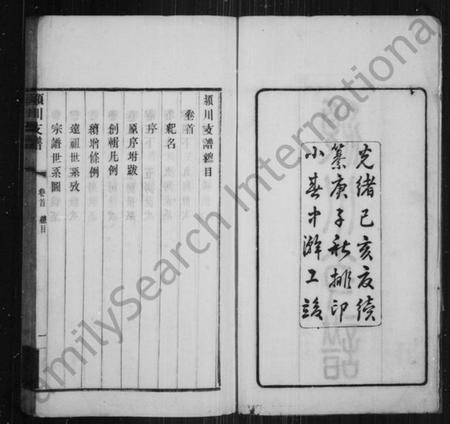 光緒己亥夏續
纂庚子秋排印
小春中澣工竣
潁川支譜總目
卷首
譜名
序
原序附跋
創輯凡例
續增條例
遠祖世系攷
宗譜世系圖
潁川支譜
卷首 總目
一
FamilySearch International